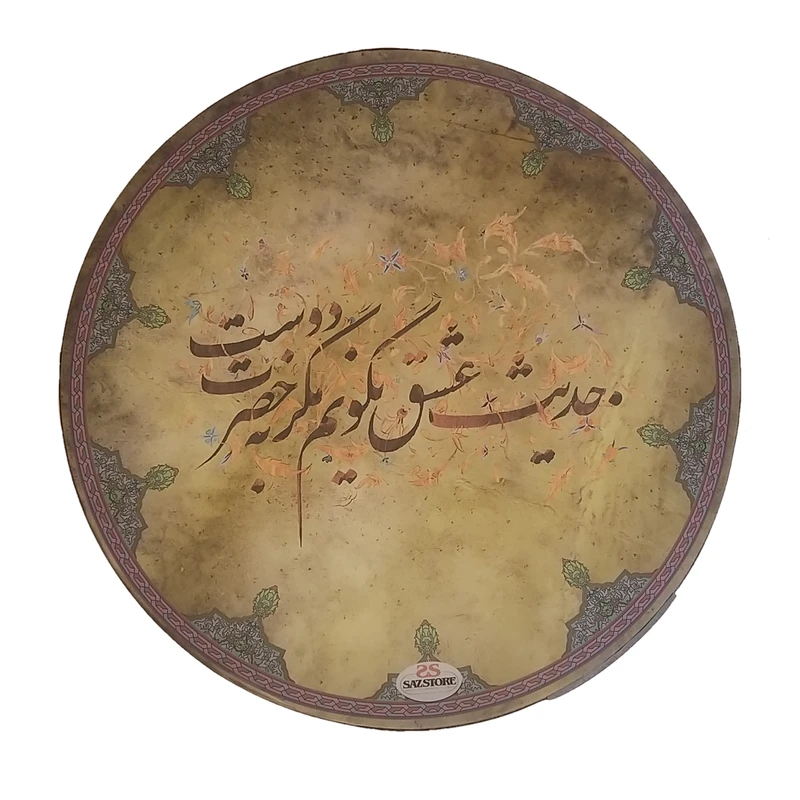 حدیث عشق نگویم مگر به حضرت دوست
SS
SAZSTORE